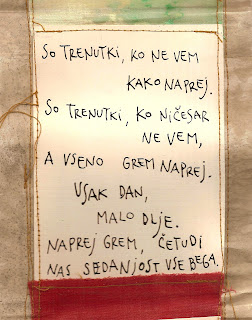 SO TRENUTKI, KO NE VEM
KAKO NAPREJ.
SO TRENUTKI, KO NIČESAR
NE VEM,
A VSENO GREM NAPREJ.
VSAK DAN,
MALO DLJE.
NAPREJ GREM, ČETUDI
NAS SEDANJOST VSE BEGA.